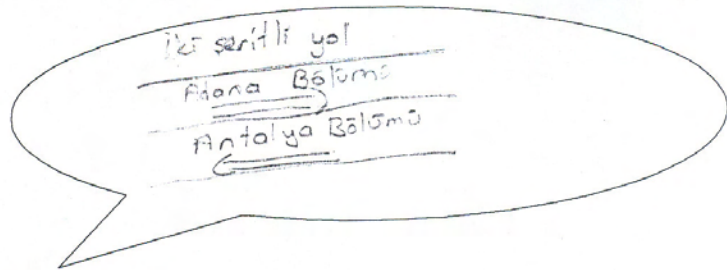 İki şeritli yol
Adana Bölümü
Antalya Bölümü